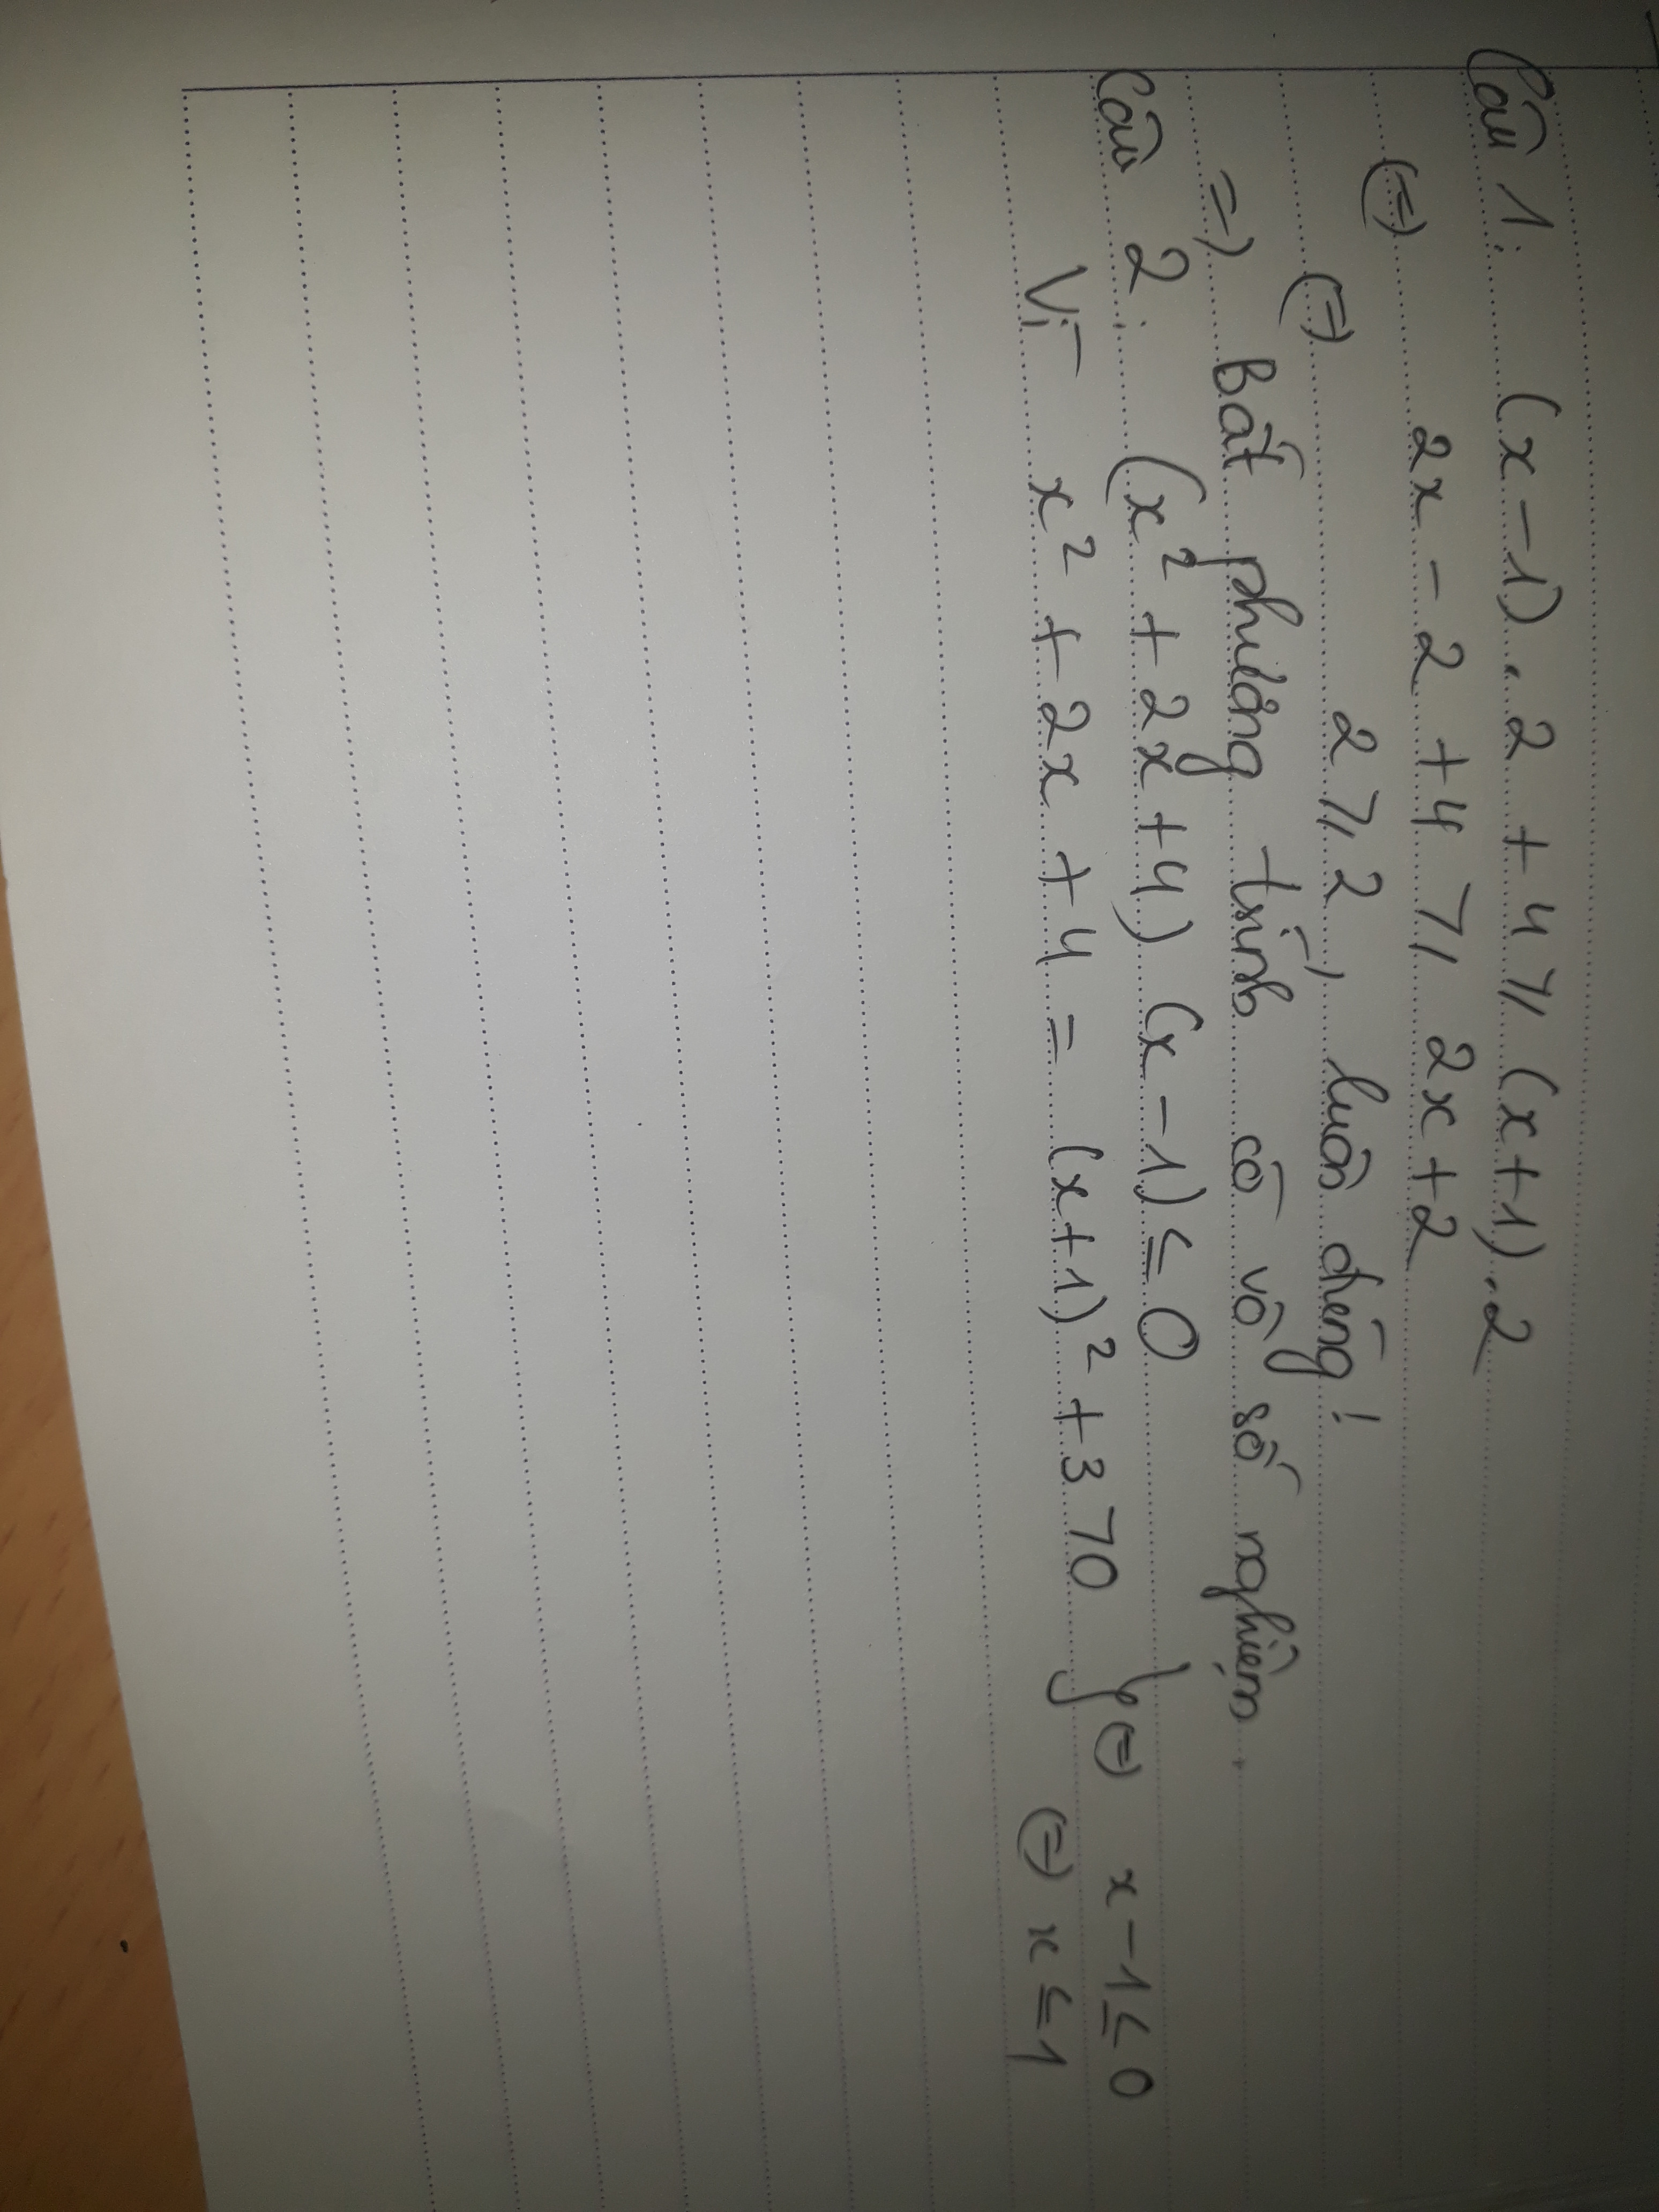 Câu 1: (x-1).2 + 4 ≥ (x+1).2
(=) 2x - 2 + 4 ≥ 2x + 2
(=) 2 ≥ 2, luôn đúng!
=> Bất phương trình có vô số nghiệm.
Câu 2: (x² + 2x + 4) (x - 1) ≤ 0
Vì x² + 2x + 4 = (x+1)² + 3 > 0 } (=) x - 1 ≤ 0
(=) x ≤ 1